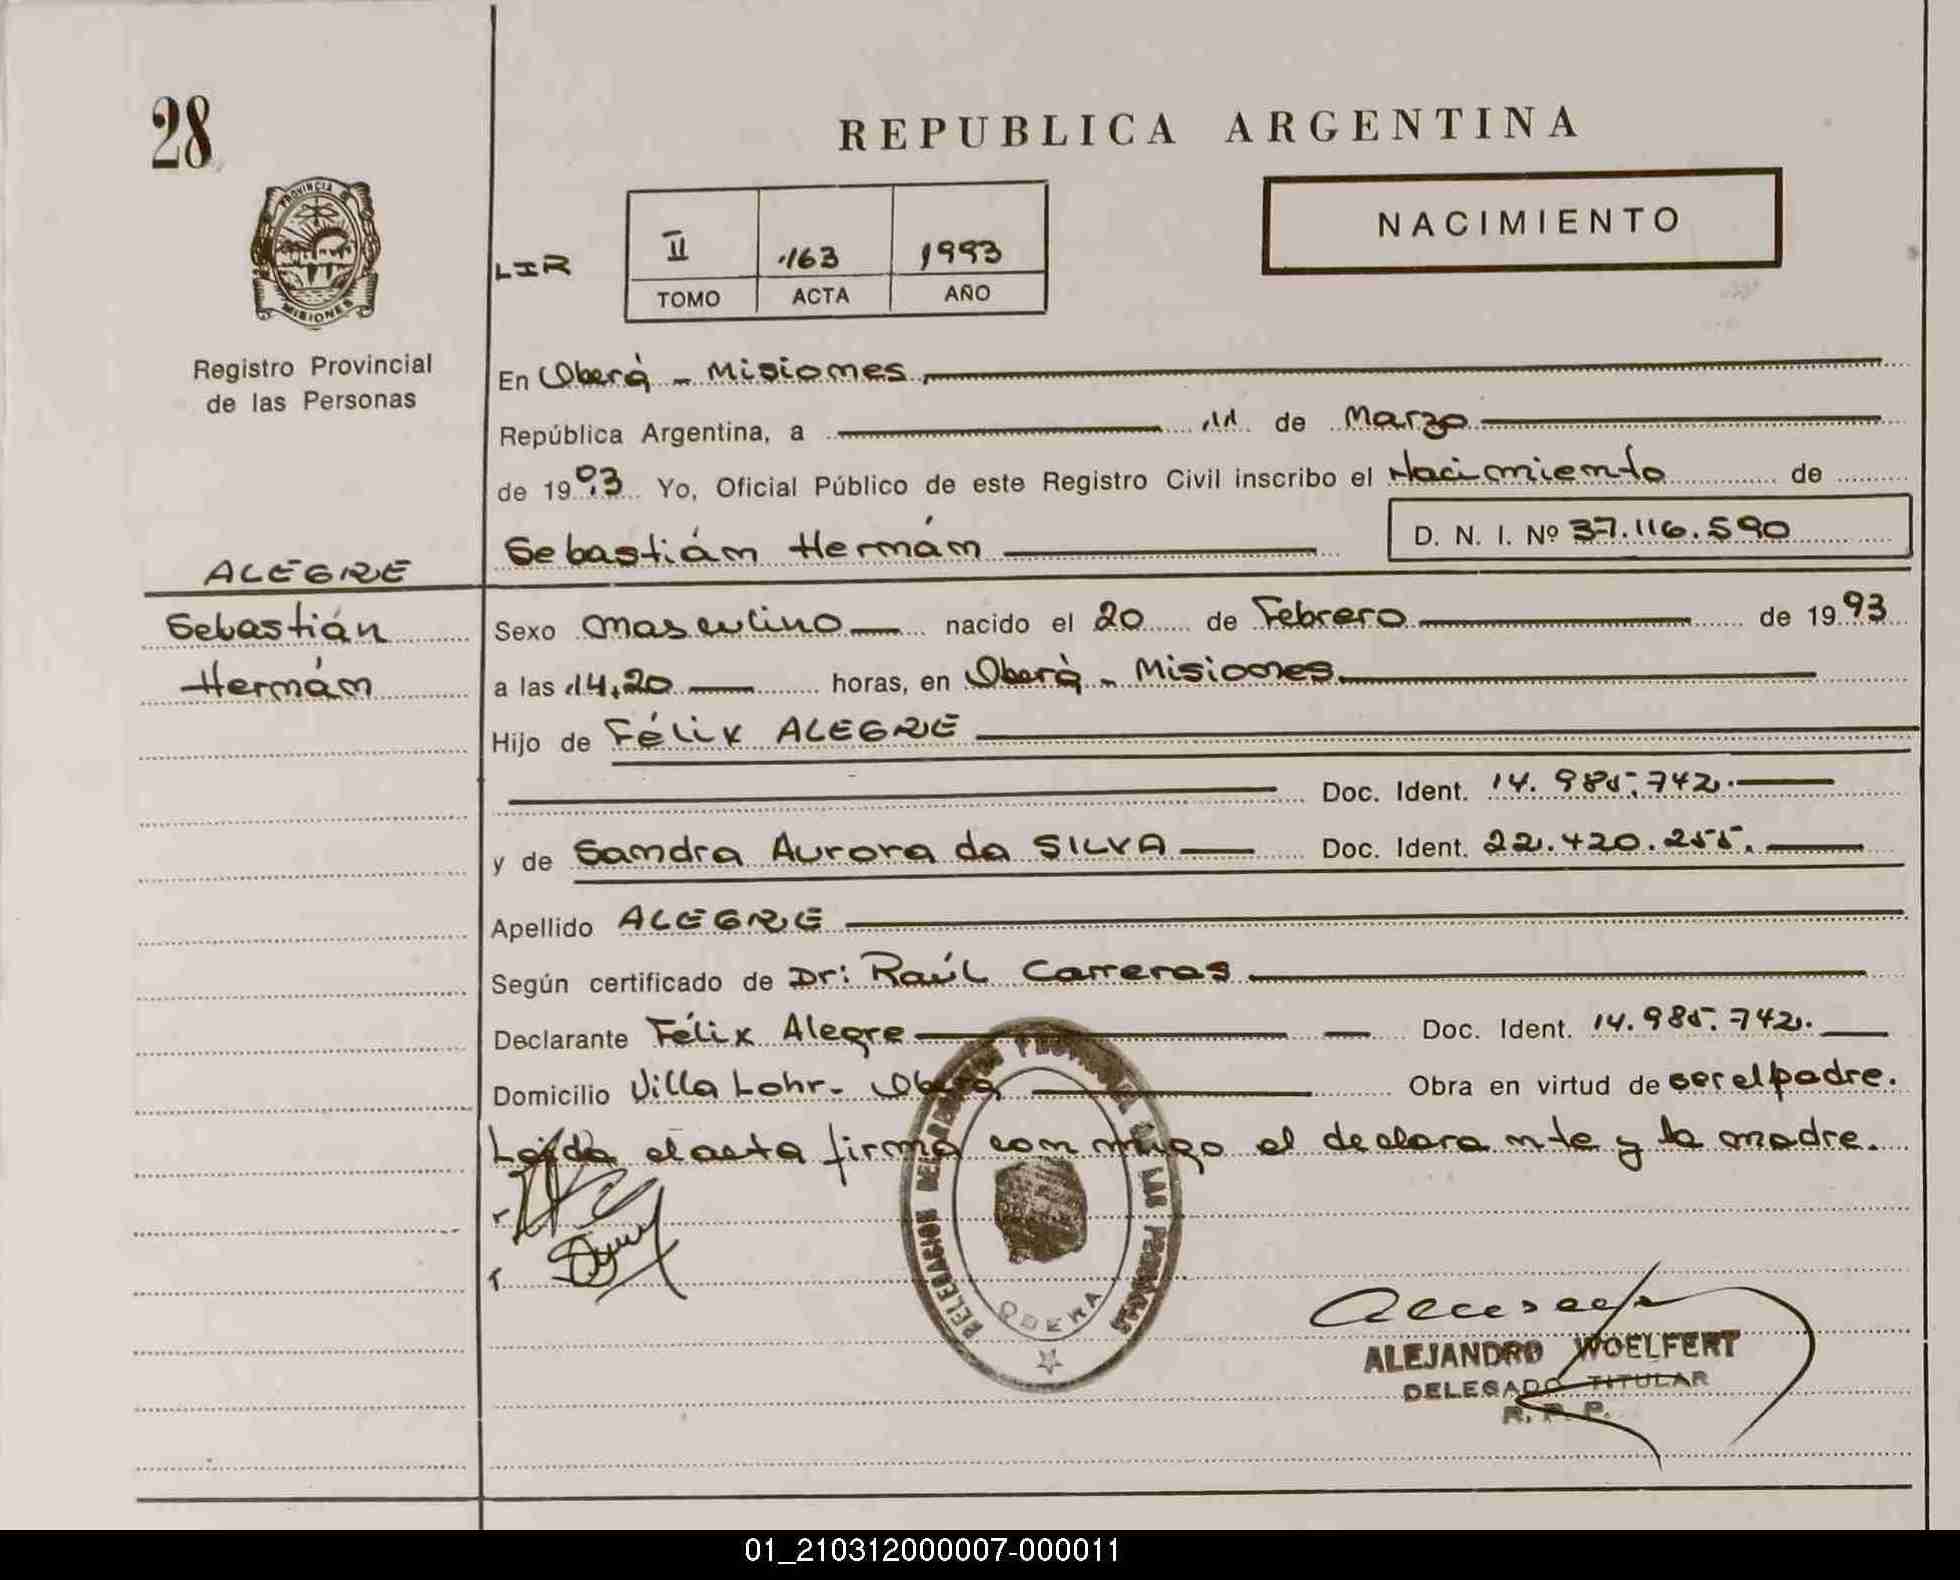 28
REPUBLICA ARGENTINA
NACIMIENTO
PROVINCIA
MISIONES
LIR
II 163 1993
TOMO ACTA AÑO
Registro Provincial
de las Personas
En Oberá - Misiones
República Argentina, a 11 de Marzo
de 1993 Yo, Oficial Público de este Registro Civil inscribo el Nacimiento de
Sebastián Hernán D. N. I. Nº 37.116.590
ALEGRE
Sebastián
Hernán
Sexo masculino nacido el 20 de Febrero de 1993
a las 14,20 horas, en Oberá - Misiones
Hijo de Félix ALEGRE
Doc. Ident. 14.985.742.
y de Sandra Aurora da SILVA Doc. Ident. 22.420.255.
Apellido ALEGRE
Según certificado de Dr: Raúl Carreras
Declarante Félix Alegre Doc. Ident. 14.985.742.
Domicilio Villa Lohr - Oberá Obra en virtud de ser el padre.
Leída el acta firma con migo el declarante y la madre.
DELEGACION DEL REGISTRO PROVINCIAL DE LAS PERSONAS
OBERA
ALEJANDRO WOELFERT
DELEGADO TITULAR
R. P. P.
01_210312000007-000011